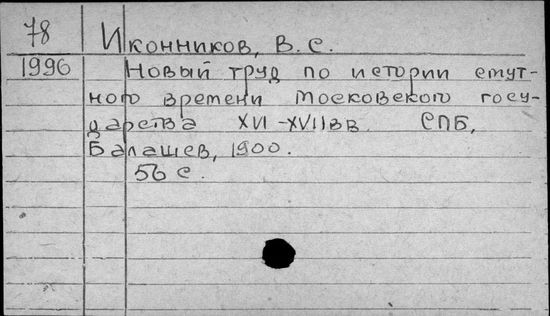 78 Иконников, В. С.
1996 Новый труд по истории смут-
ного времени Московского госу-
дарства XVI-XVII вв. СПБ,
Балашев, 1900.
56 с.